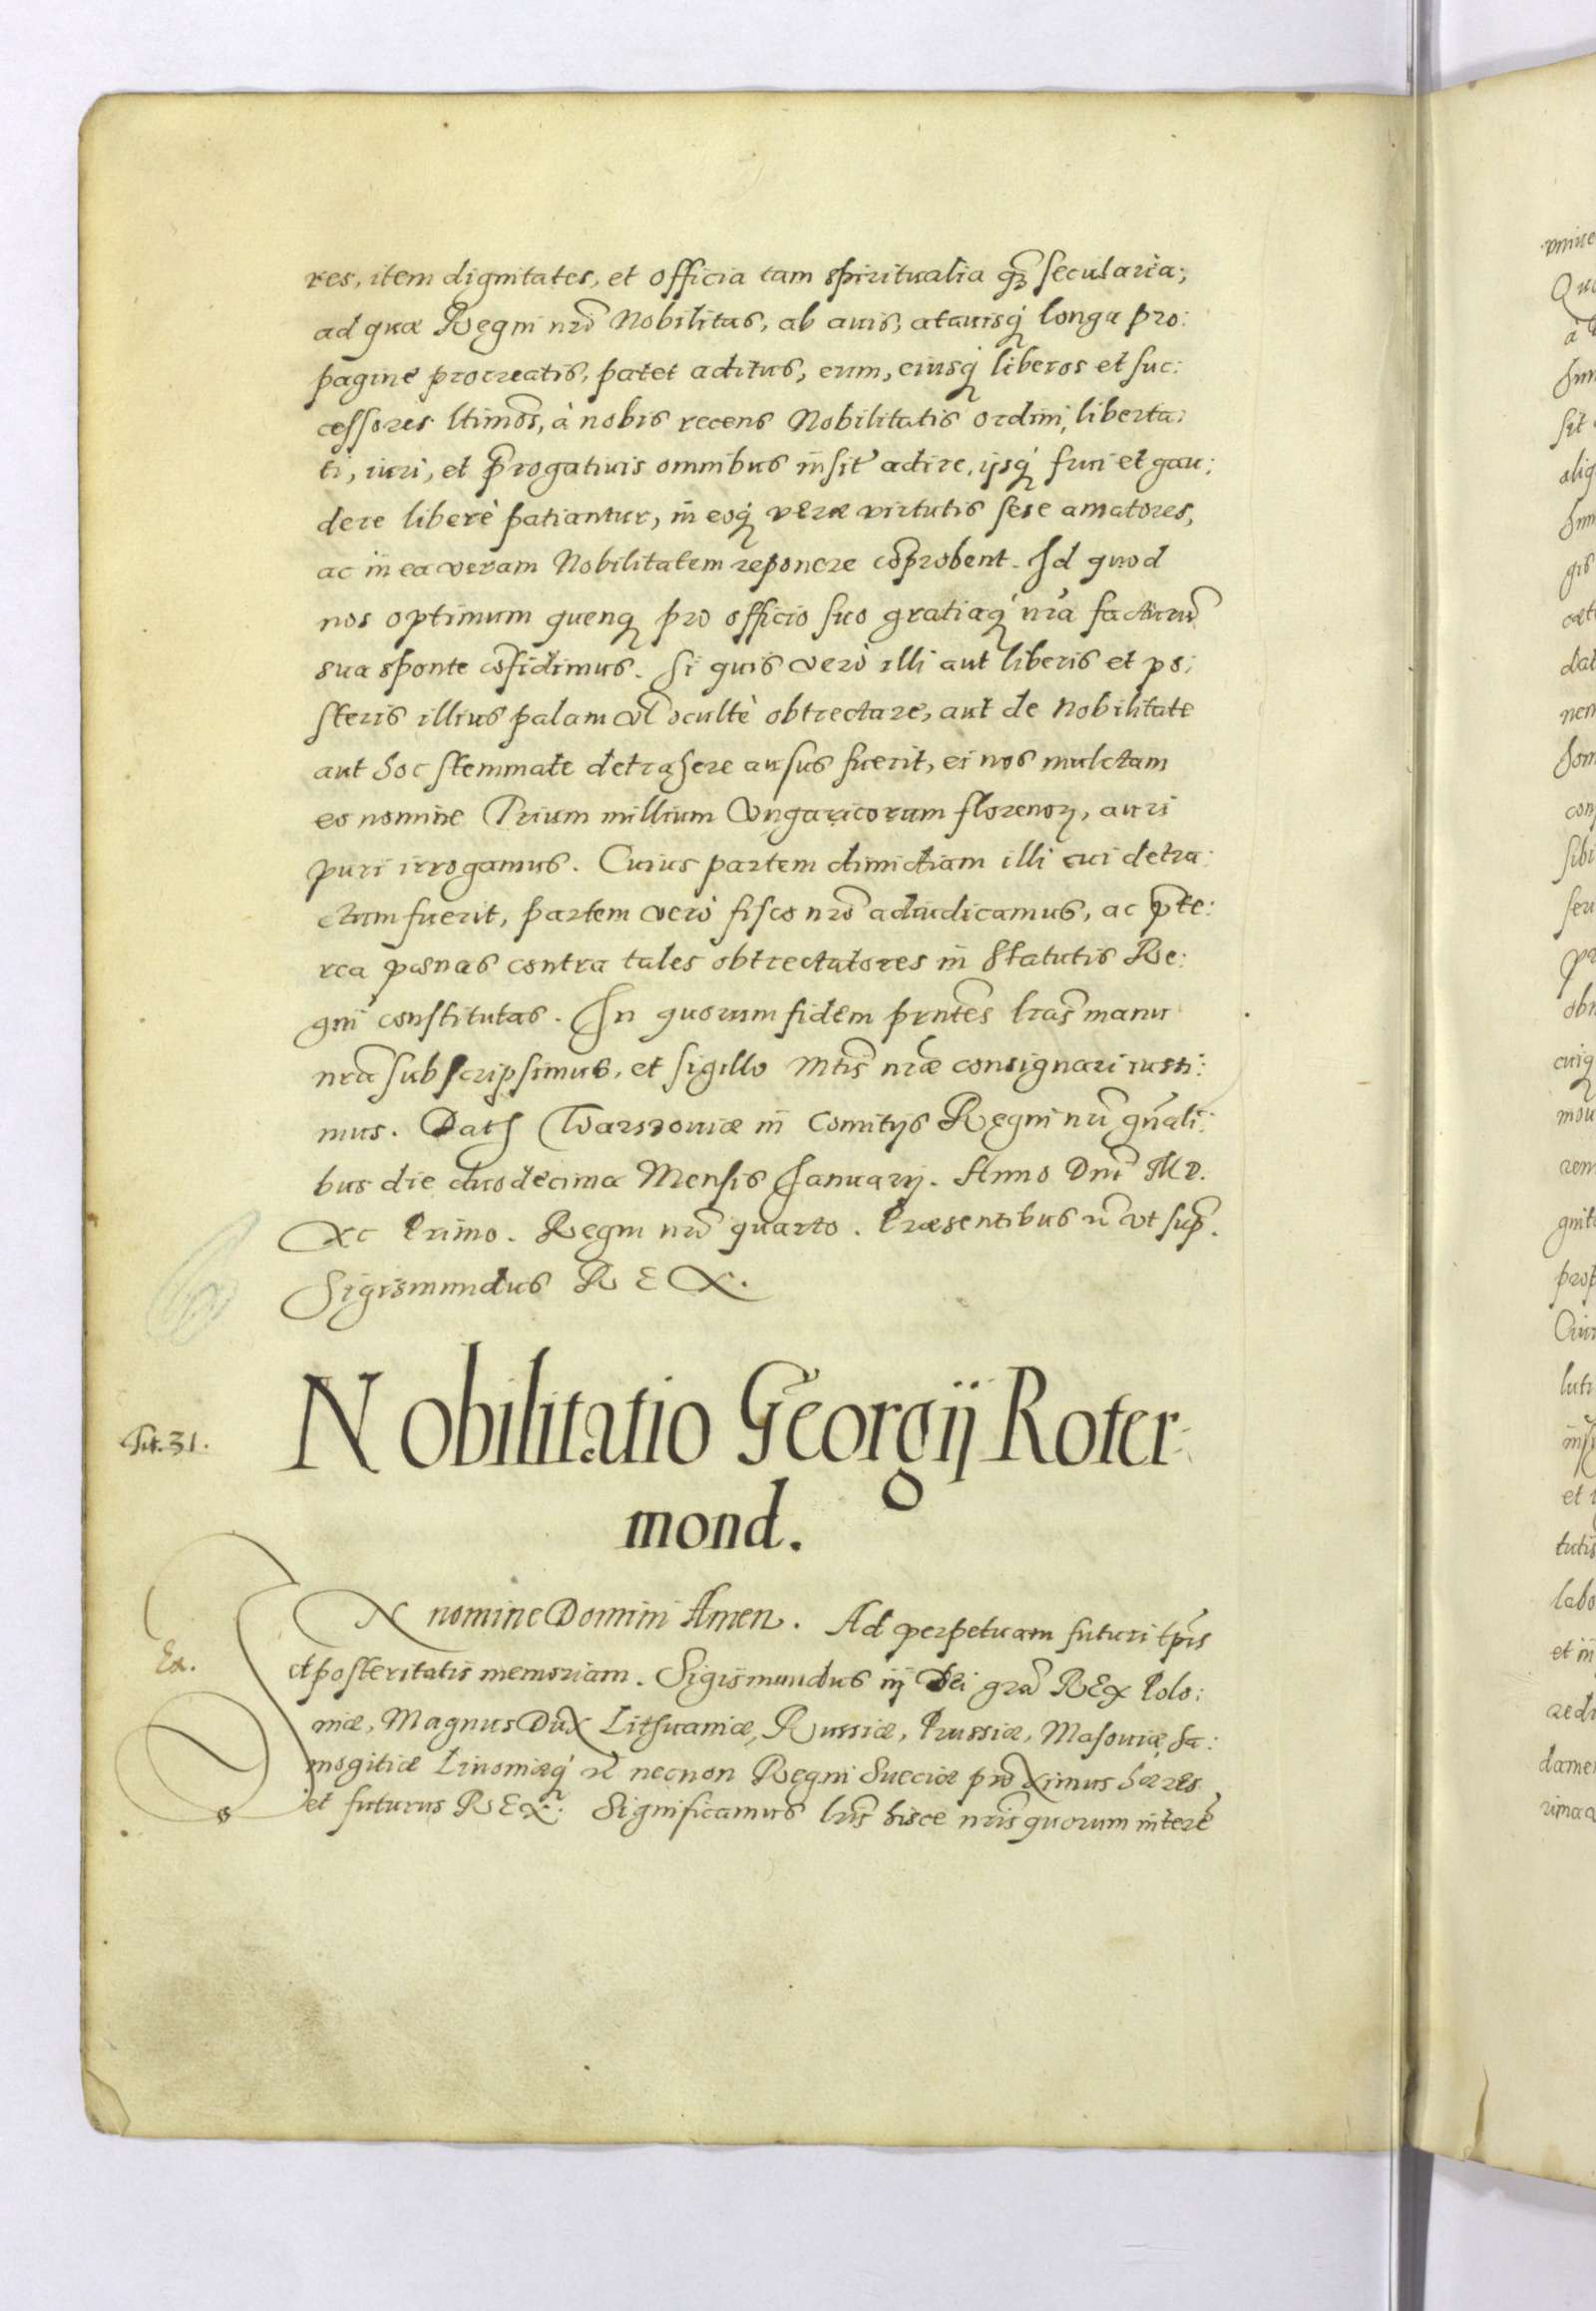 res, item dignitates, et officia tam spiritualia qz̃ secularia;
ad quæ Regni nrĩ Nobilitas, ab auis, atauisq́ longa pro:
pagine procreatis, patet aditus, eum, eiusq́ liberos et suc:
cessores ltimõs, à nobis recens Nobilitatis ordini, liberta:
ti, iuri, et p̃rogatiuis omnibus insit' adire, ijsq́ frui et gau:
dere liberè patiantur, in eoq́ veræ virtutis sese amatores,
ac in ea veram Nobilitatem reponere cõprobent. Id quod
nos optimum quenq pro officio suo gratiaq́ nrã facturũ
sua sponte cõfidimus. Si quis verò illi aut liberis et po:
steris illius palam vl̃ ocultè obtrectare, aut de Nobilitate
aut hoc stemmate detrahere ausus fuerit, ei nos mulctam
eo nomine Trium millium Vngaricorum florenoꝝ, auri
puri irrogamus. Cuius partem dimidiam illi cui detra:
ctum fuerit, partem verò fisco nrõ adiudicamus, ac p̃te:
rea pœnas contra tales obtrectatores in Statutis Re:
gni constitutas. In quorum fidem prñtes lrãs manu
nrã subscripsimus, et sigillo Mtis̃ nræ̃ consignari iussi:
mus. Dat Warssouiæ in Comitijs Regni nrĩ gñali:
bus die duodecima Mensis Januarij. Anno Dnĩ MD.
XC Primo. Regni nrĩ quarto. Præsentibus ut sup̃.
Sigismundus REX.
Tit. 31.
Nobilitatio Georgij Roter:
mond.
IN nomine Domini Amen. Ad perpetuam futuri tp̃is
Ex.
et posteritatis memoriam. Sigismundus iij Dei grã REX Polo:
niæ, Magnus DuX Lithuaniæ, Russiæ, Prussiæ, Masouiæ, Sa:
mogitiæ Liuoniæq́ necnon Regni Sueciæ proXimus hæres
et futurus REX. Significamus lris̃ hisce nris̃ quorum interẽ